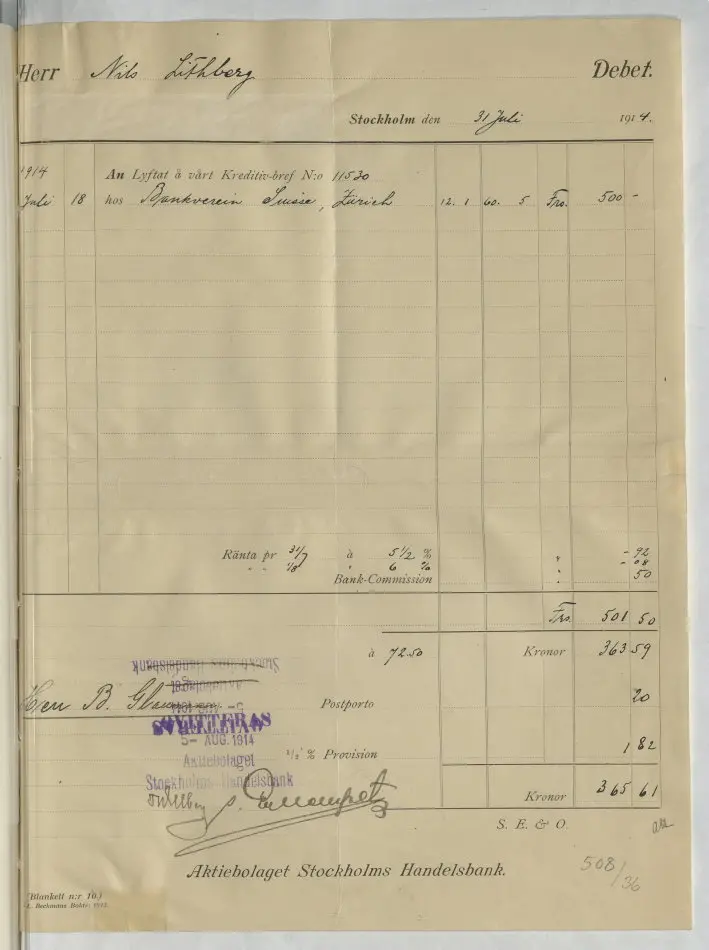 Herr Nils Lithberg Debet.
Stockholm den 31 Juli 1914.
1914 An Lyftat å vårt Kreditiv-bref N:o 11530
Juli 18 hos Bankverein Suisse, Zürich 12. 1 60. 5 Frs. 500 -
Ränta pr 31/7 à 5 1/2 % " - 92
" " 1/8 " 6 % " - 08
Bank-Commission " 50
Frs. 501 50
à 72.50 Kronor 363 59
Stockholms Handelsbank
Aktiebolaget
Herr B. Postporto 20
5- AUG. 1914
QVITTERAS
5- AUG. 1914
% Provision 1 82
Aktiebolaget
Stockholms Handelsbank
Kronor 365 61
S. E. & O.
Aktiebolaget Stockholms Handelsbank.
508/36
(Blankett n:r 10.)